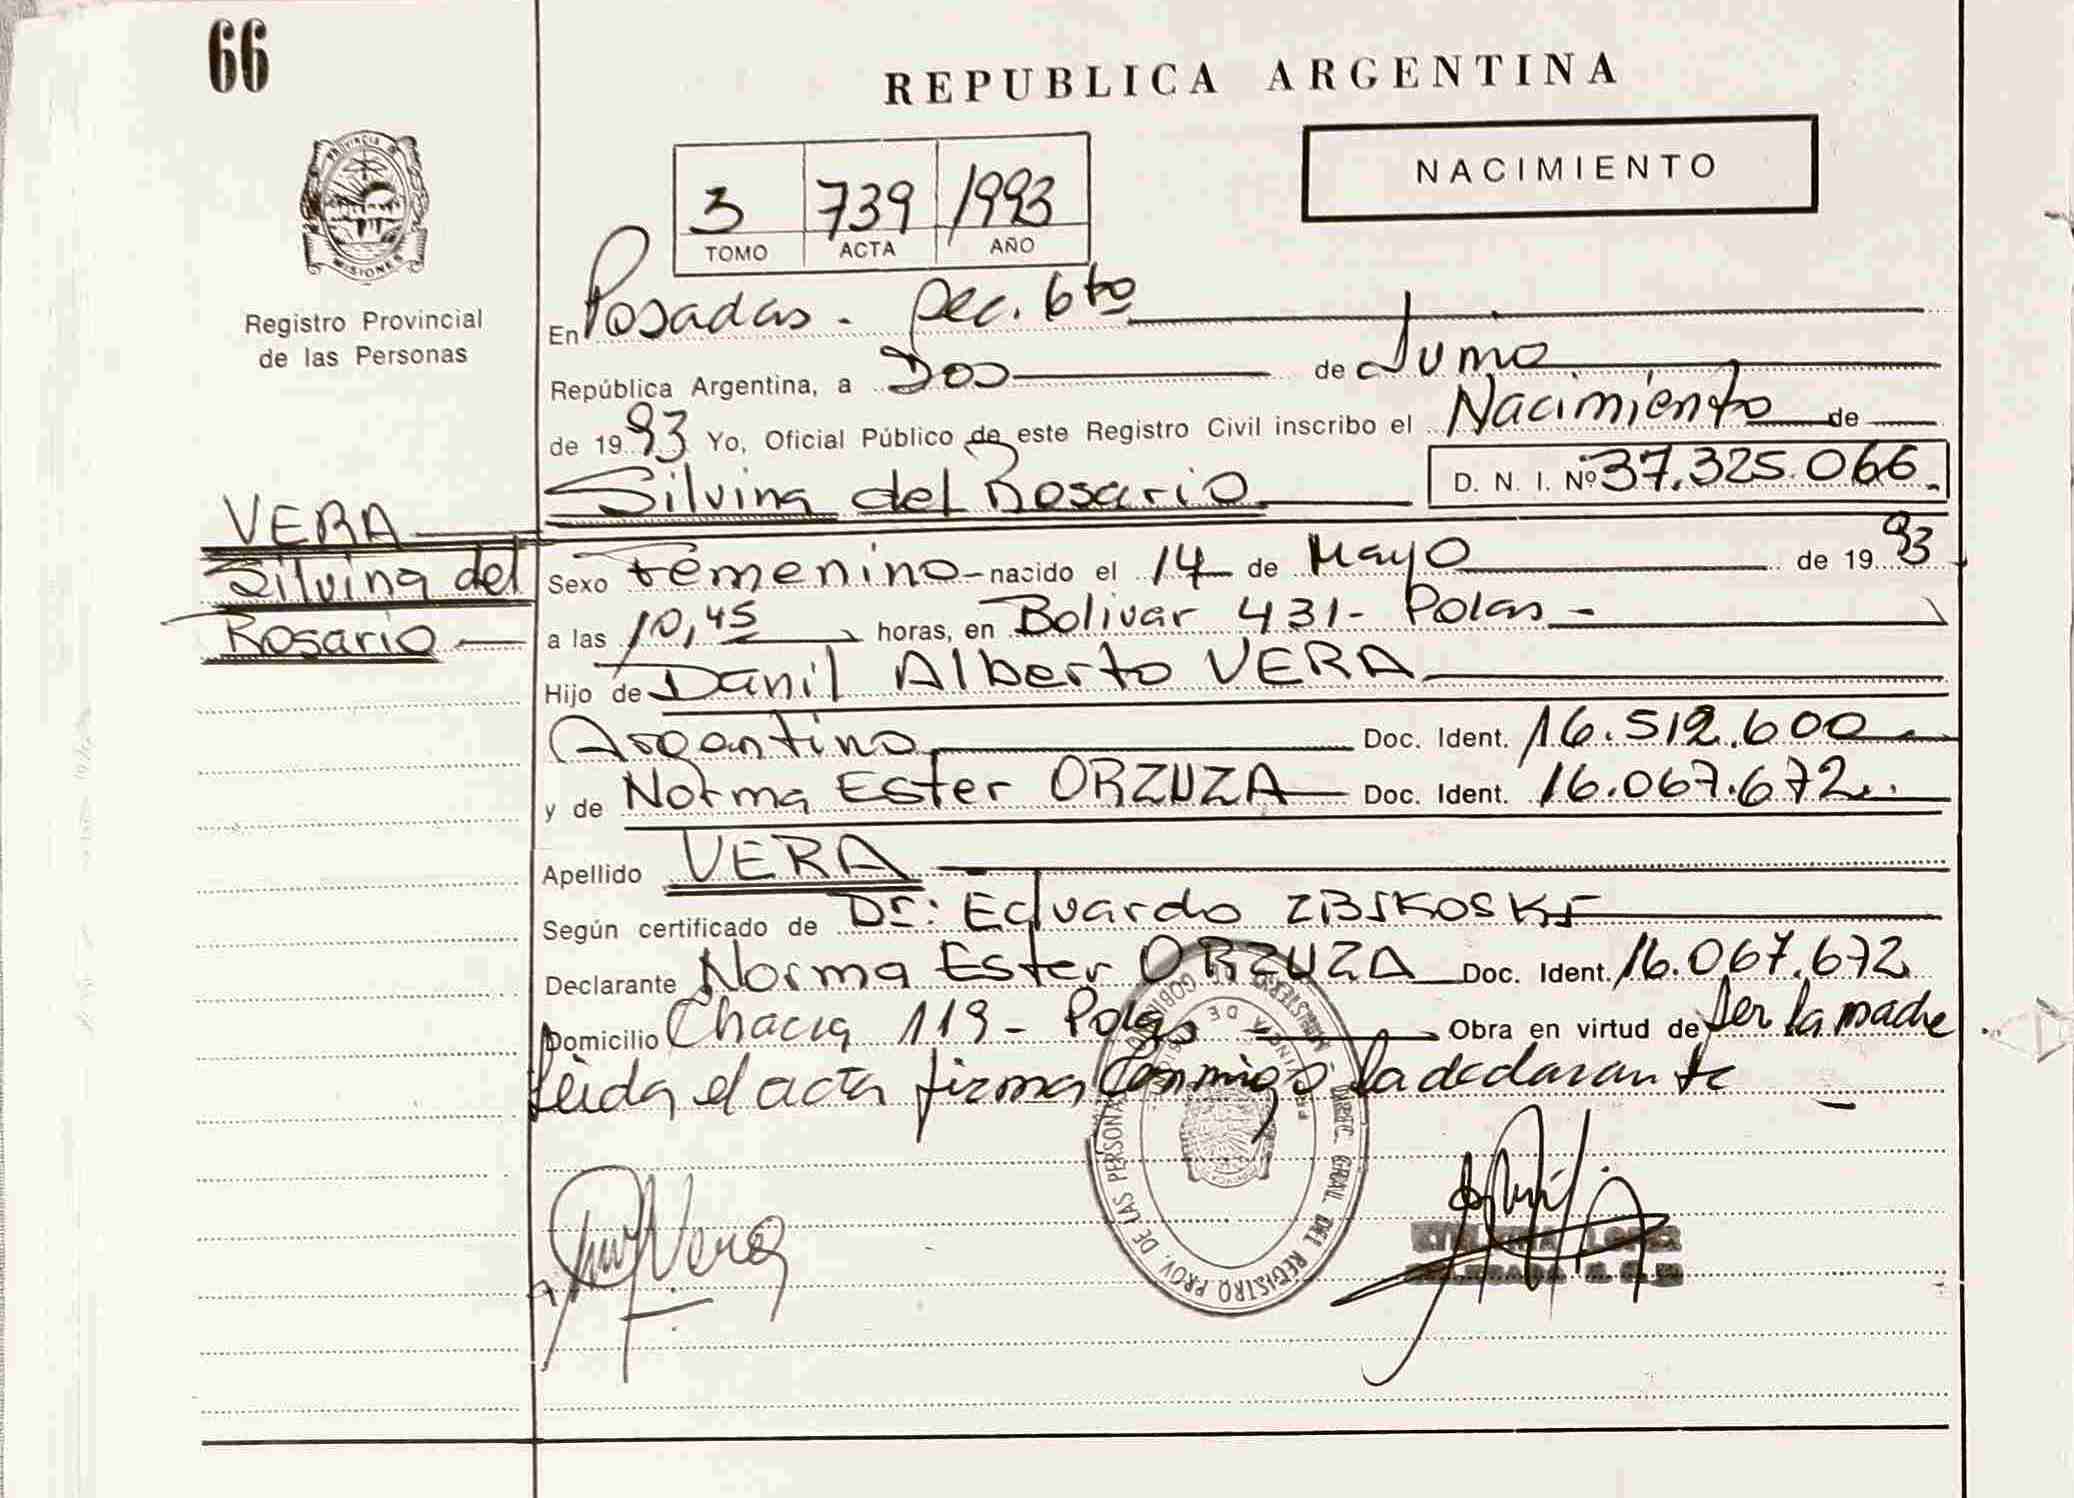 66
REPUBLICA ARGENTINA
NACIMIENTO
3 739 1993
TOMO ACTA AÑO
PROVINCIA DE MISIONES
Registro Provincial
de las Personas
En Posadas - Sec. 6to
República Argentina, a Dos de Junio
de 1993 Yo, Oficial Público de este Registro Civil inscribo el Nacimiento de
Silvina del Rosario D. N. I. Nº 37.325.066.
VERA
Silvina del
Rosario
Sexo Femenino nacido el 14 de Mayo de 1993
a las 10,45 horas, en Bolivar 431 - Pdas -
Hijo de Danil Alberto VERA
Argentino Doc. Ident. 16.512.600
y de Norma Ester ORZUZA Doc. Ident. 16.067.672
Apellido VERA
Según certificado de Dr: Eduardo ZBIKOSKI
Declarante Norma Ester ORZUZA Doc. Ident. 16.067.672
Domicilio Chacra 119 - Pdas Obra en virtud de Ser la madre
Leida el acta firma Conmigo la declarante
Vera
DIREC. GRAL. DEL REGISTRO PROV. DE LAS PERSONAS
LOPEZ